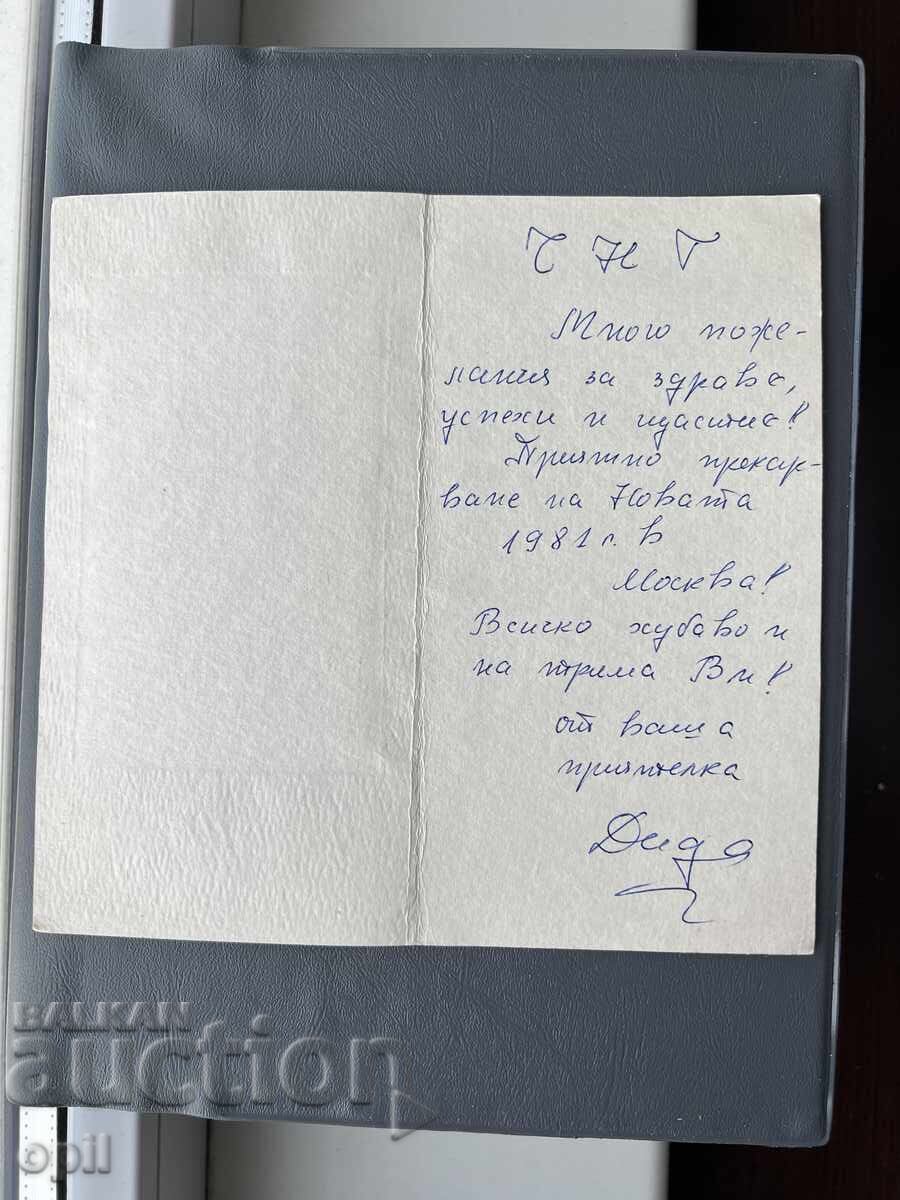 Ч Н Г
Много поже-
лания за здраве,
успехи и щастие!
Приятно прекар-
ване на Новата
1981 г. в
Москва!
Всичко хубаво и
на трима Ви!
от ваша
приятелка
Дида
BALKAN
auction
opil